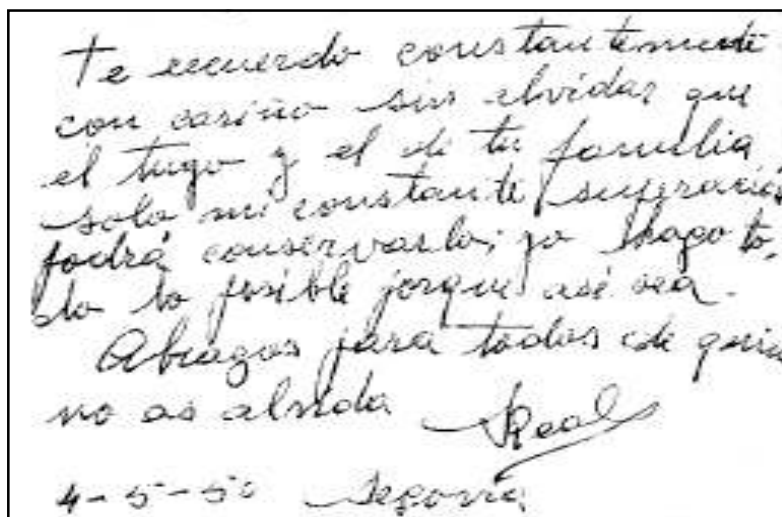 Te recuerdo constantemente
con cariño sin olvidar que
el tuyo y el de tu familia
solo mi constante superación
podrá conservarlo; yo hago to-
do lo posible porque así sea.
Abrazos para todos de quien
no os olvida Real
4-5-50 Segovia